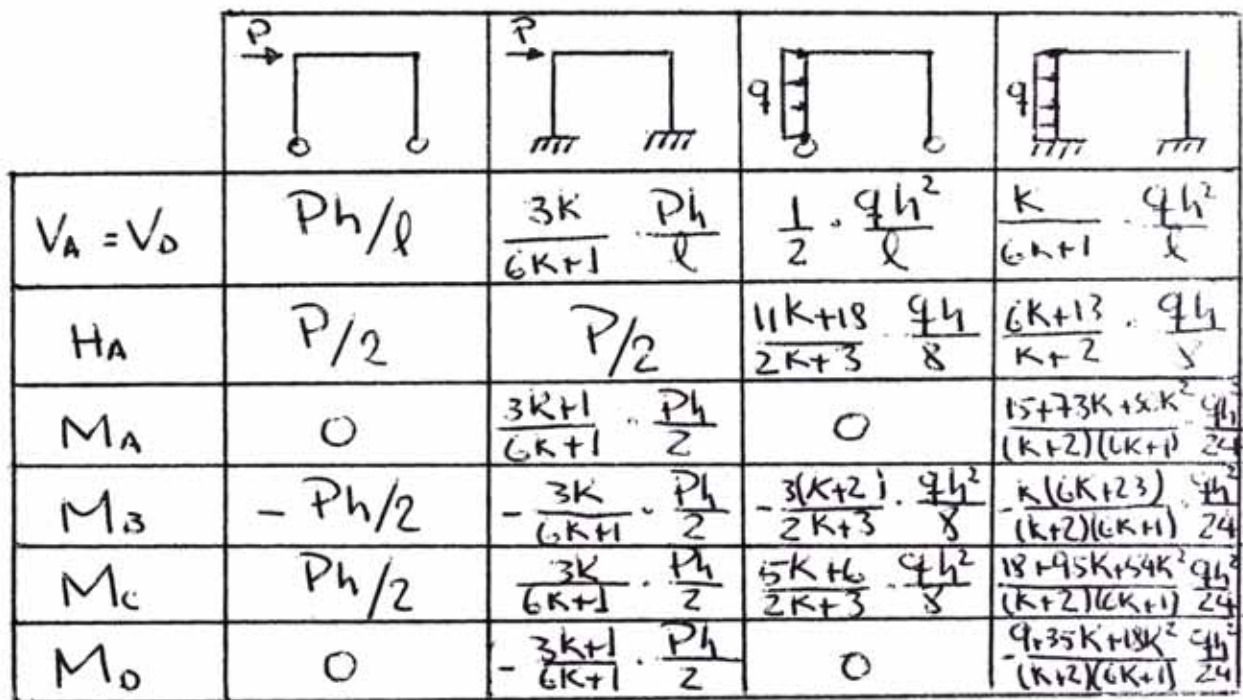 P P q q
V_A = V_D Ph/l 3K/(6K+1) · Ph/l 1/2 · qh²/l K/(6K+1) · qh²/l
H_A P/2 P/2 (11K+18)/(2K+3) · qh/8 (6K+13)/(K+2) · qh/8
M_A 0 (3K+1)/(6K+1) · Ph/2 0 /(K+2)(6K+1) · qh²/24
M_B - Ph/2 - 3K/(6K+1) · Ph/2 - 3(K+2)/(2K+3) · qh²/8 - K(6K+23)/(K+2)(6K+1) · qh²/24
M_C Ph/2 3K/(6K+1) · Ph/2 (5K+6)/(2K+3) · qh²/8 (18+95K+54K²)/(K+2)(6K+1) qh²/24
M_D 0 - (3K+1)/(6K+1) · Ph/2 0 - (9+35K+18K²)/(K+2)(6K+1) qh²/24